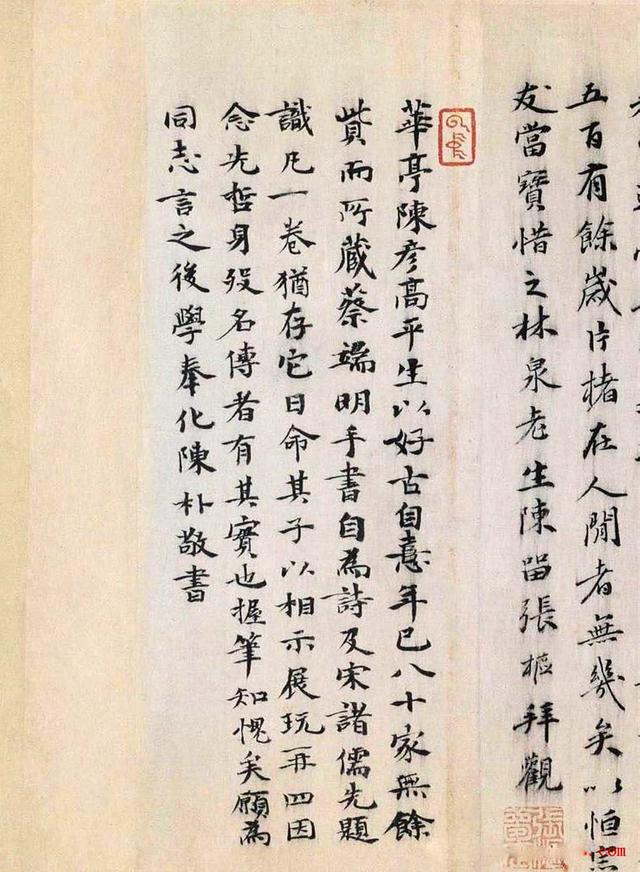 五百有餘歲片楮在人閒者無幾矣以恒
友當寶惜之林泉老生陳留張樞拜觀
華亭陳彥高平生以好古自憙年已八十家無餘
貲而所藏蔡端明手書自為詩及宋諸儒先題
識凡一卷猶存它日命其子以相示展玩再四因
念先哲身歿名傳者有其實也握筆知愧矣願為
同志言之後學奉化陳朴敬書
.com